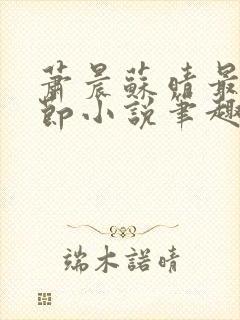 蕭晨蘇晴最
節小說筆趣
端木諾晴